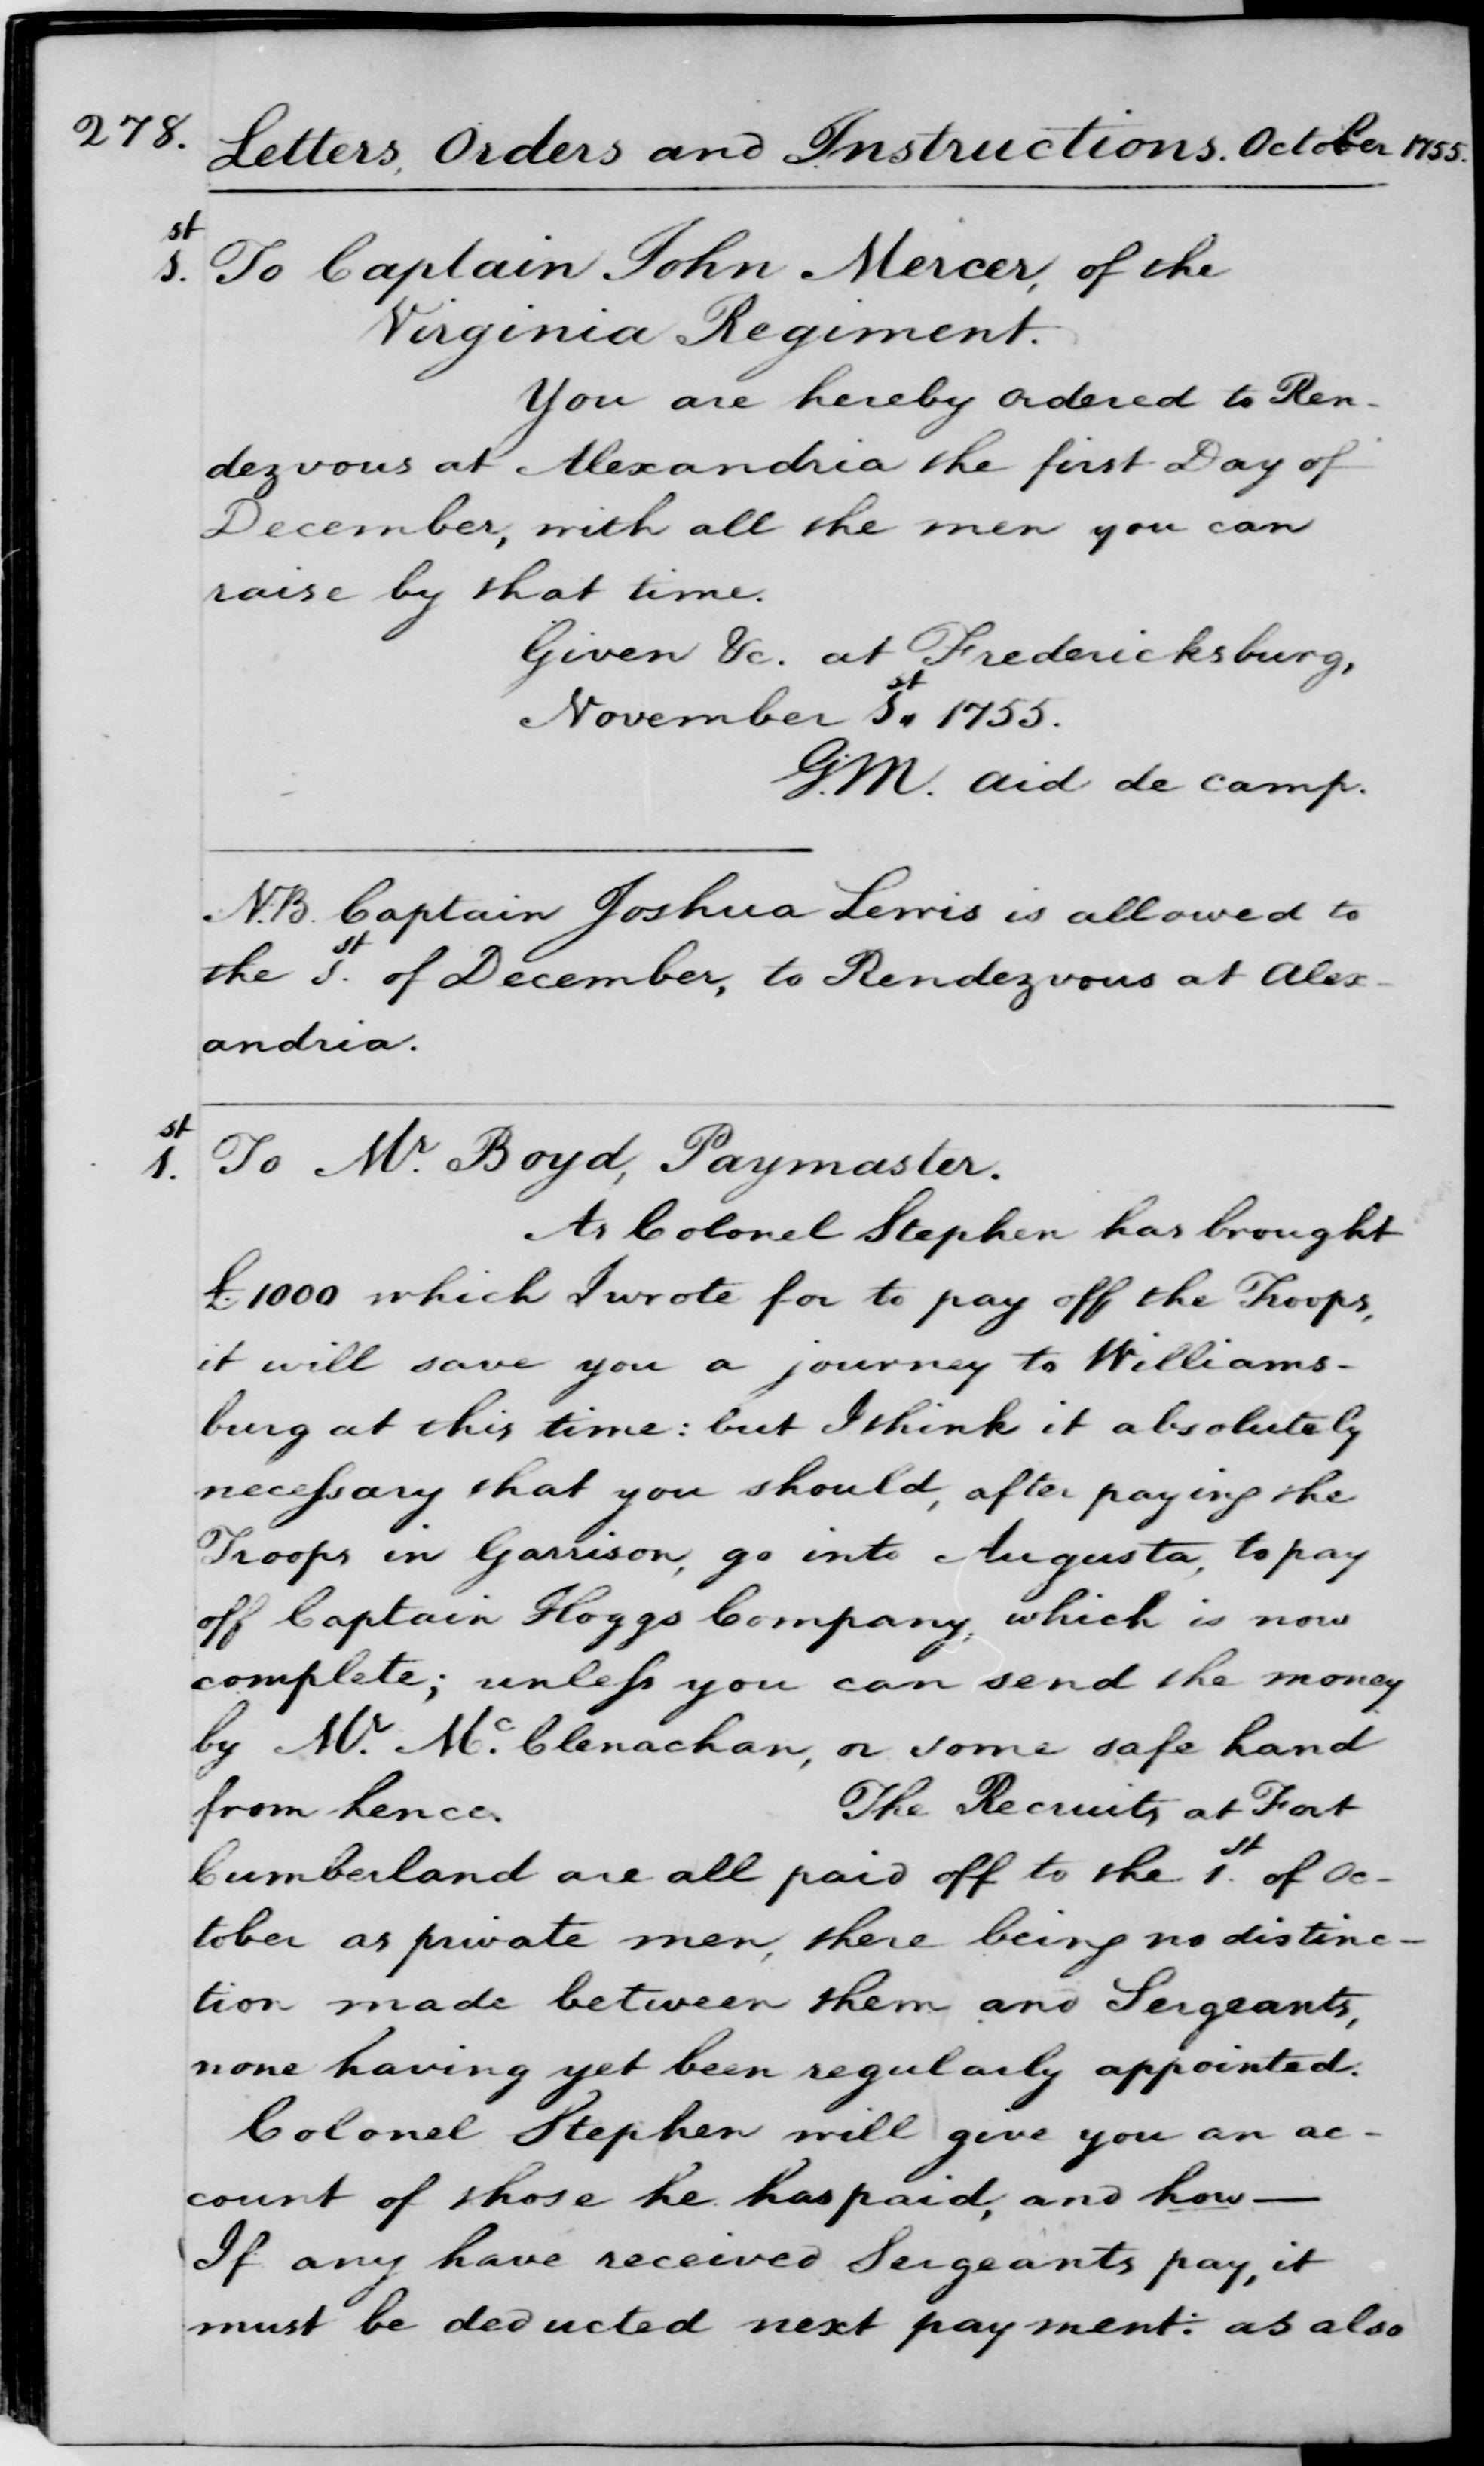 278. Letters, Orders and Instructions. October 1755.
1st. To Captain John Mercer, of the
Virginia Regiment.
You are hereby ordered to Ren-
dezvous at Alexandria the first Day of
December, with all the men you can
raise by that time.
Given &c. at Fredericksburg,
November 1st. 1755.
G.M. aid de camp.
N.B. Captain Joshua Lewis is allowed to
the 1st. of December, to Rendezvous at Alex-
andria.
1st. To Mr. Boyd, Paymaster.
As Colonel Stephen has brought
£1000 which I wrote for to pay off the Troops,
it will save you a journey to Williams-
burg at this time: but I think it absolutely
necessary that you should, after paying the
Troops in Garrison, go into Augusta, to pay
off Captain Hoggs Company, which is now
complete; unless you can send the money
by Mr. McClenachan, or some safe hand
from hence. The Recruits at Fort
Cumberland are all paid off to the 1st. of Oc-
tober as private men, there being no distinc-
tion made between them and Sergeants,
none having yet been regularly appointed.
Colonel Stephen will give you an ac-
count of those he has paid, and how—
If any have received Sergeants pay, it
must be deducted next payment: as also